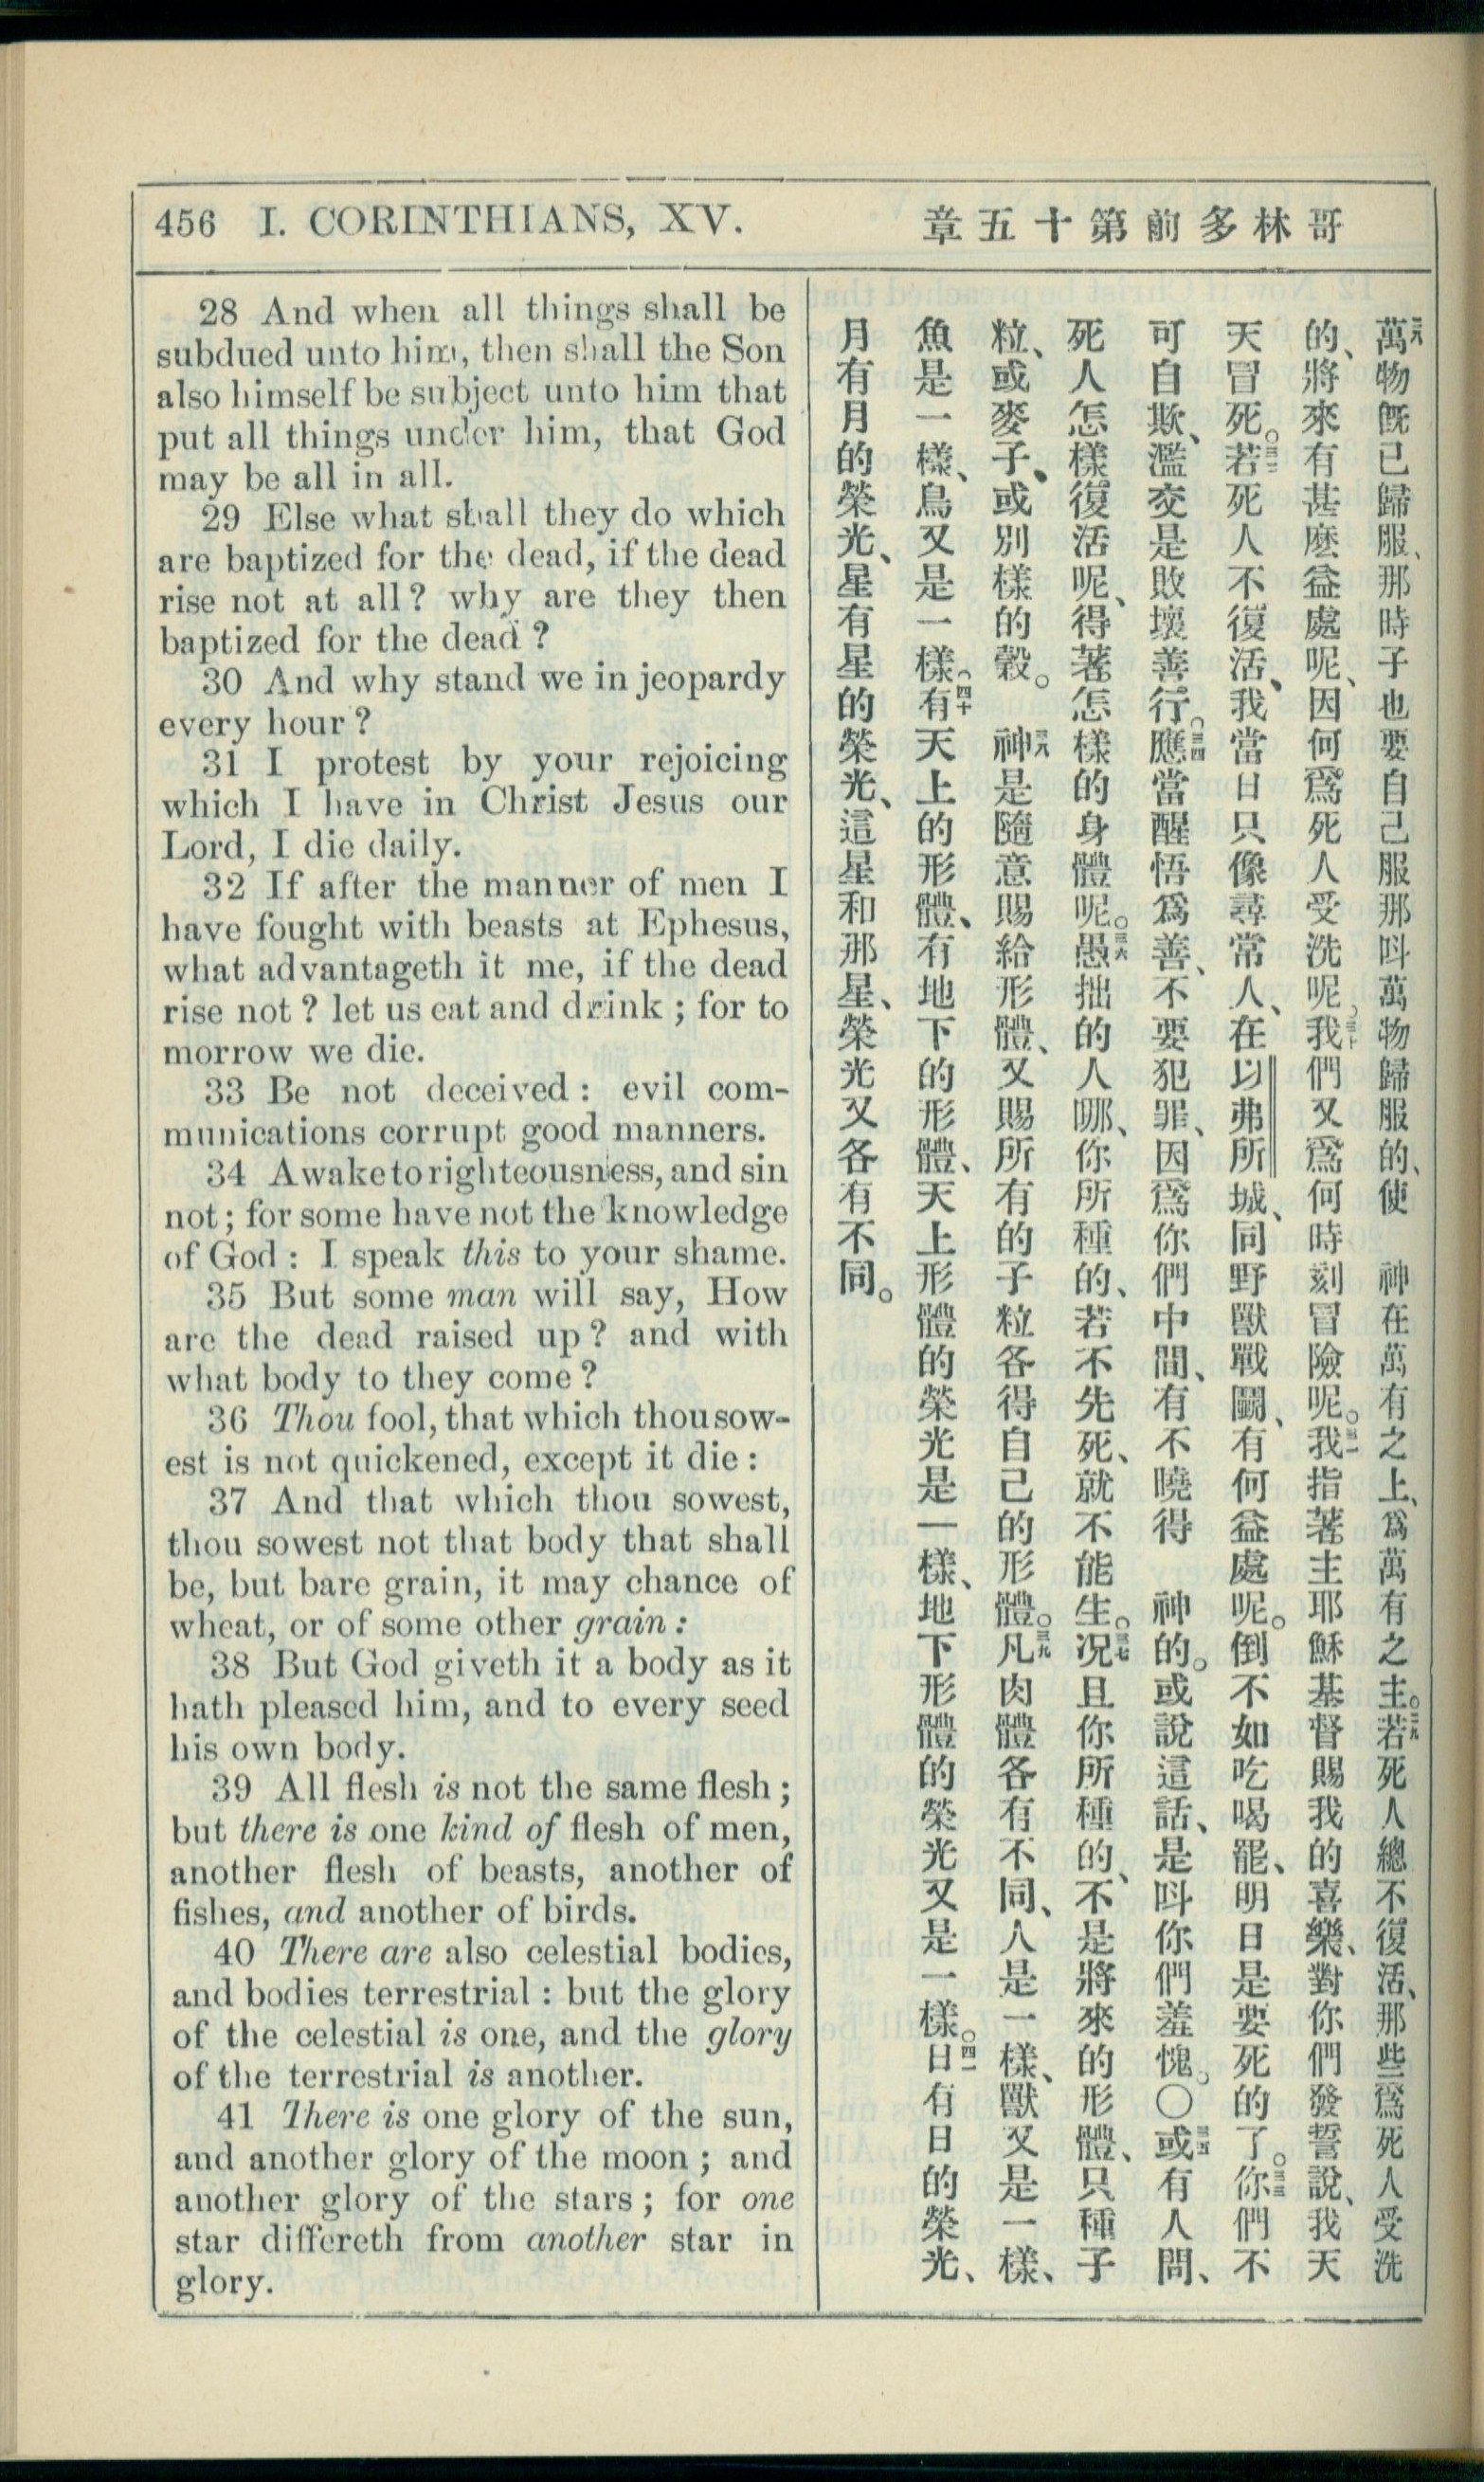 456 I. CORINTHIANS, XV.
哥林多前第十五章
28 And when all things shall be
subdued unto him, then shall the Son
also himself be subject unto him that
put all things under him, that God
may be all in all.
29 Else what shall they do which
are baptized for the dead, if the dead
rise not at all? why are they then
baptized for the dead?
30 And why stand we in jeopardy
every hour?
31 I protest by your rejoicing
which I have in Christ Jesus our
Lord, I die daily.
32 If after the manner of men I
have fought with beasts at Ephesus,
what advantageth it me, if the dead
rise not? let us eat and drink; for to
morrow we die.
33 Be not deceived: evil com-
munications corrupt good manners.
34 Awake to righteousness, and sin
not; for some have not the knowledge
of God: I speak this to your shame.
35 But some man will say, How
are the dead raised up? and with
what body to they come?
36 Thou fool, that which thou sow-
est is not quickened, except it die:
37 And that which thou sowest,
thou sowest not that body that shall
be, but bare grain, it may chance of
wheat, or of some other grain:
38 But God giveth it a body as it
hath pleased him, and to every seed
his own body.
39 All flesh is not the same flesh;
but there is one kind of flesh of men,
another flesh of beasts, another of
fishes, and another of birds.
40 There are also celestial bodies,
and bodies terrestrial: but the glory
of the celestial is one, and the glory
of the terrestrial is another.
41 There is one glory of the sun,
and another glory of the moon; and
another glory of the stars; for one
star differeth from another star in
glory.
二八萬物既已歸服、那時子也要自己服那呌萬物歸服的、使 神在萬有之上、爲萬有之主。二九若死人總不復活、那些爲死人受洗
的、將來有甚麽益處呢、因何爲死人受洗呢。三十我們又爲何時刻冒險呢。三一我指著主耶穌基督賜我的喜樂、對你們發誓說、我天
天冒死。三二若死人不復活、我當日只像尋常人、在以弗所城、同野獸戰鬭、有何益處呢。倒不如吃喝罷、明日是要死的了。三三你們不
可自欺、濫交是敗壞善行。三四應當醒悟爲善、不要犯罪、因爲你們中間、有不曉得 神的。或說這話、是呌你們羞愧。〇三五或有人問、
死人怎樣復活呢、得著怎樣的身體呢。三六愚拙的人哪、你所種的、若不先死、就不能生。三七况且你所種的、不是將來的形體、只種子
粒、或麥子、或別樣的穀。三八神是隨意賜給形體、又賜所有的子粒各得自己的形體。三九凡肉體各有不同、人是一樣、獸又是一樣、
魚是一樣、鳥又是一樣。四十有天上的形體、有地下的形體、天上形體的榮光是一樣、地下形體的榮光又是一樣。四一日有日的榮光、
月有月的榮光、星有星的榮光、這星和那星、榮光又各有不同。